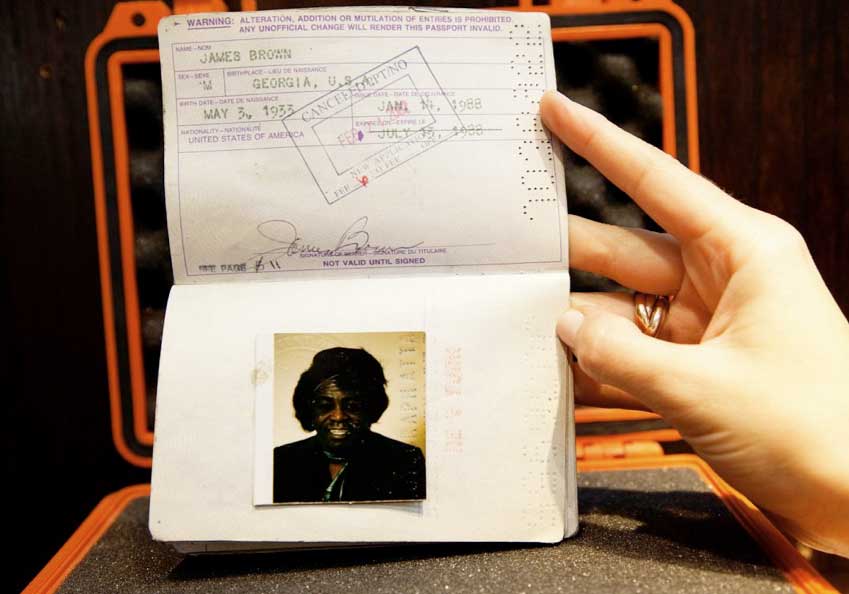 WARNING: ALTERATION, ADDITION OR MUTILATION OF ENTRIES IS PROHIBITED.
ANY UNOFFICIAL CHANGE WILL RENDER THIS PASSPORT INVALID.
NAME – NOM
JAMES BROWN
SEX – SEXE
M
BIRTHPLACE – LIEU DE NAISSANCE
GEORGIA, U.S.A.
BIRTH DATE – DATE DE NAISSANCE
MAY 3, 1933
ISSUE DATE – DATE DE DÉLIVRANCE
JAN. 14, 1988
EXPIRE LE
JULY 1988
NATIONALITY – NATIONALITÉ
UNITED STATES OF AMERICA
NEW
FEE
James Brown
SIGNATURE OF BEARER – SIGNATURE DU TITULAIRE
NOT VALID UNTIL SIGNED
SEE PAGE